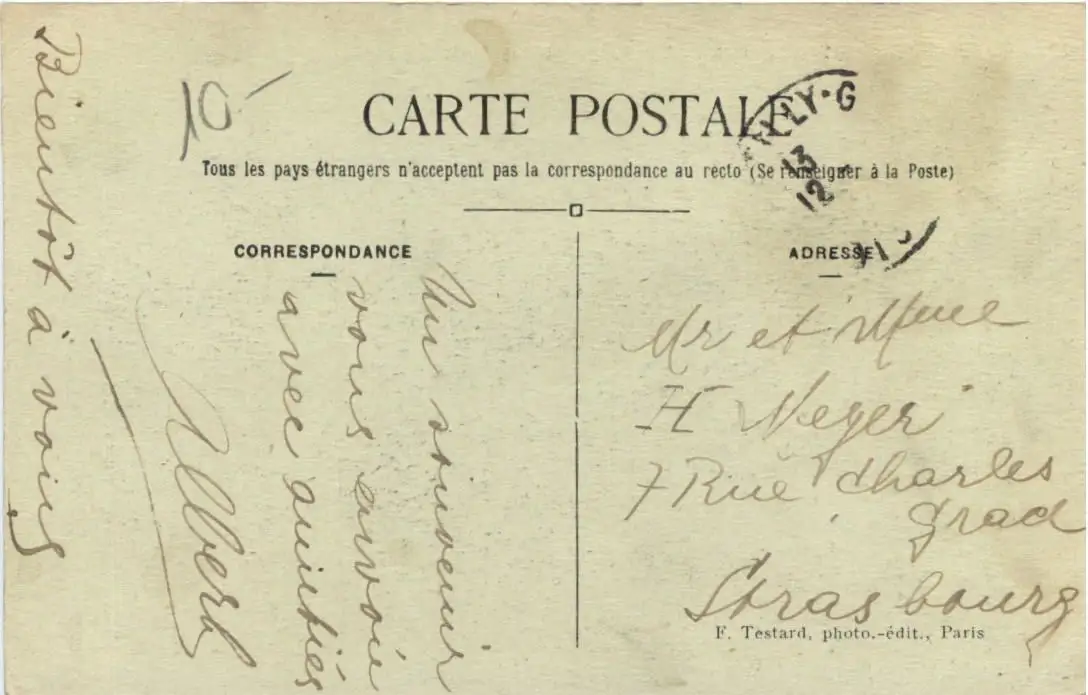 10
CARTE POSTALE
Tous les pays étrangers n'acceptent pas la correspondance au recto (Se renseigner à la Poste)
CORRESPONDANCE
Un souvenir
vous envoie
avec amitiés
Albert
Bientôt à vous
ADRESSE
LLY-G
13
12
Mr et Mme
H Meyer
7 Rue Charles
Grad
Strasbourg
F. Testard, photo.-édit., Paris